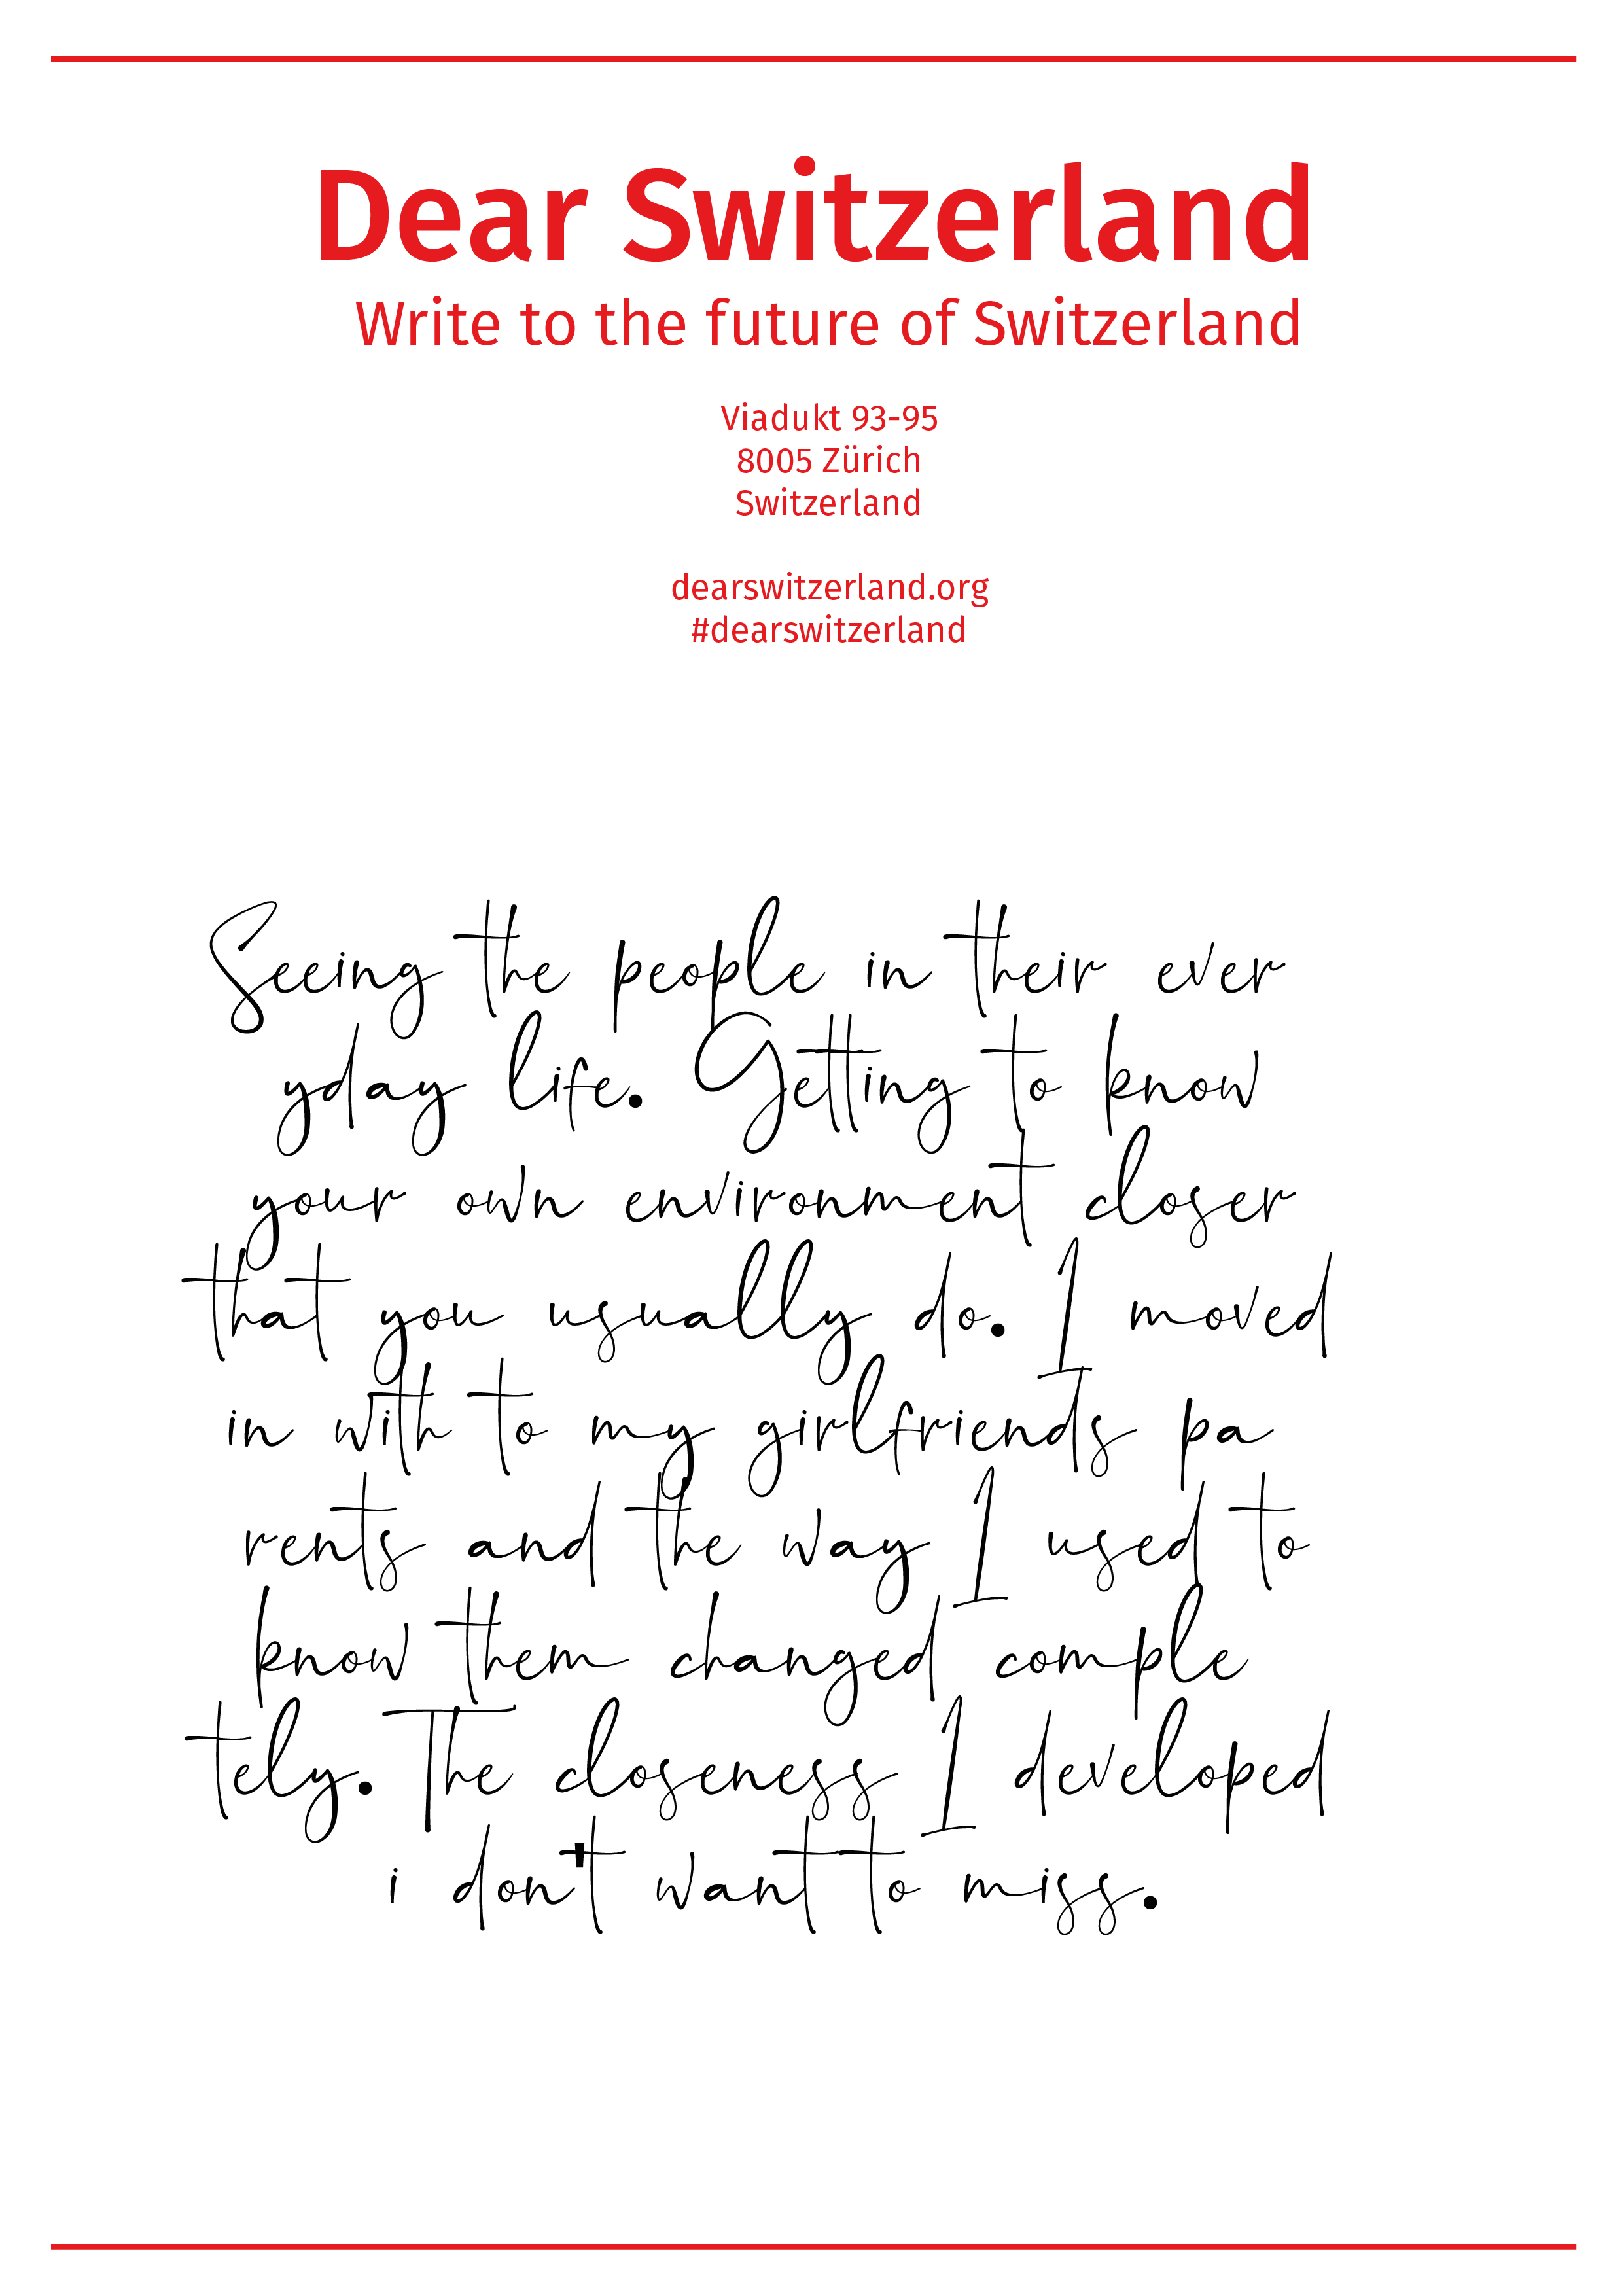 Dear Switzerland
Write to the future of Switzerland
Viadukt 93-95
8005 Zürich
Switzerland
dearswitzerland.org
#dearswitzerland
Seeing the people in their ever
yday life. Getting to know
your own environment closer
that you usually do. I moved
in with to my girlfriends pa
rents and the way I used to
know them changed comple
tely. The closeness I developed
i don't want to miss.